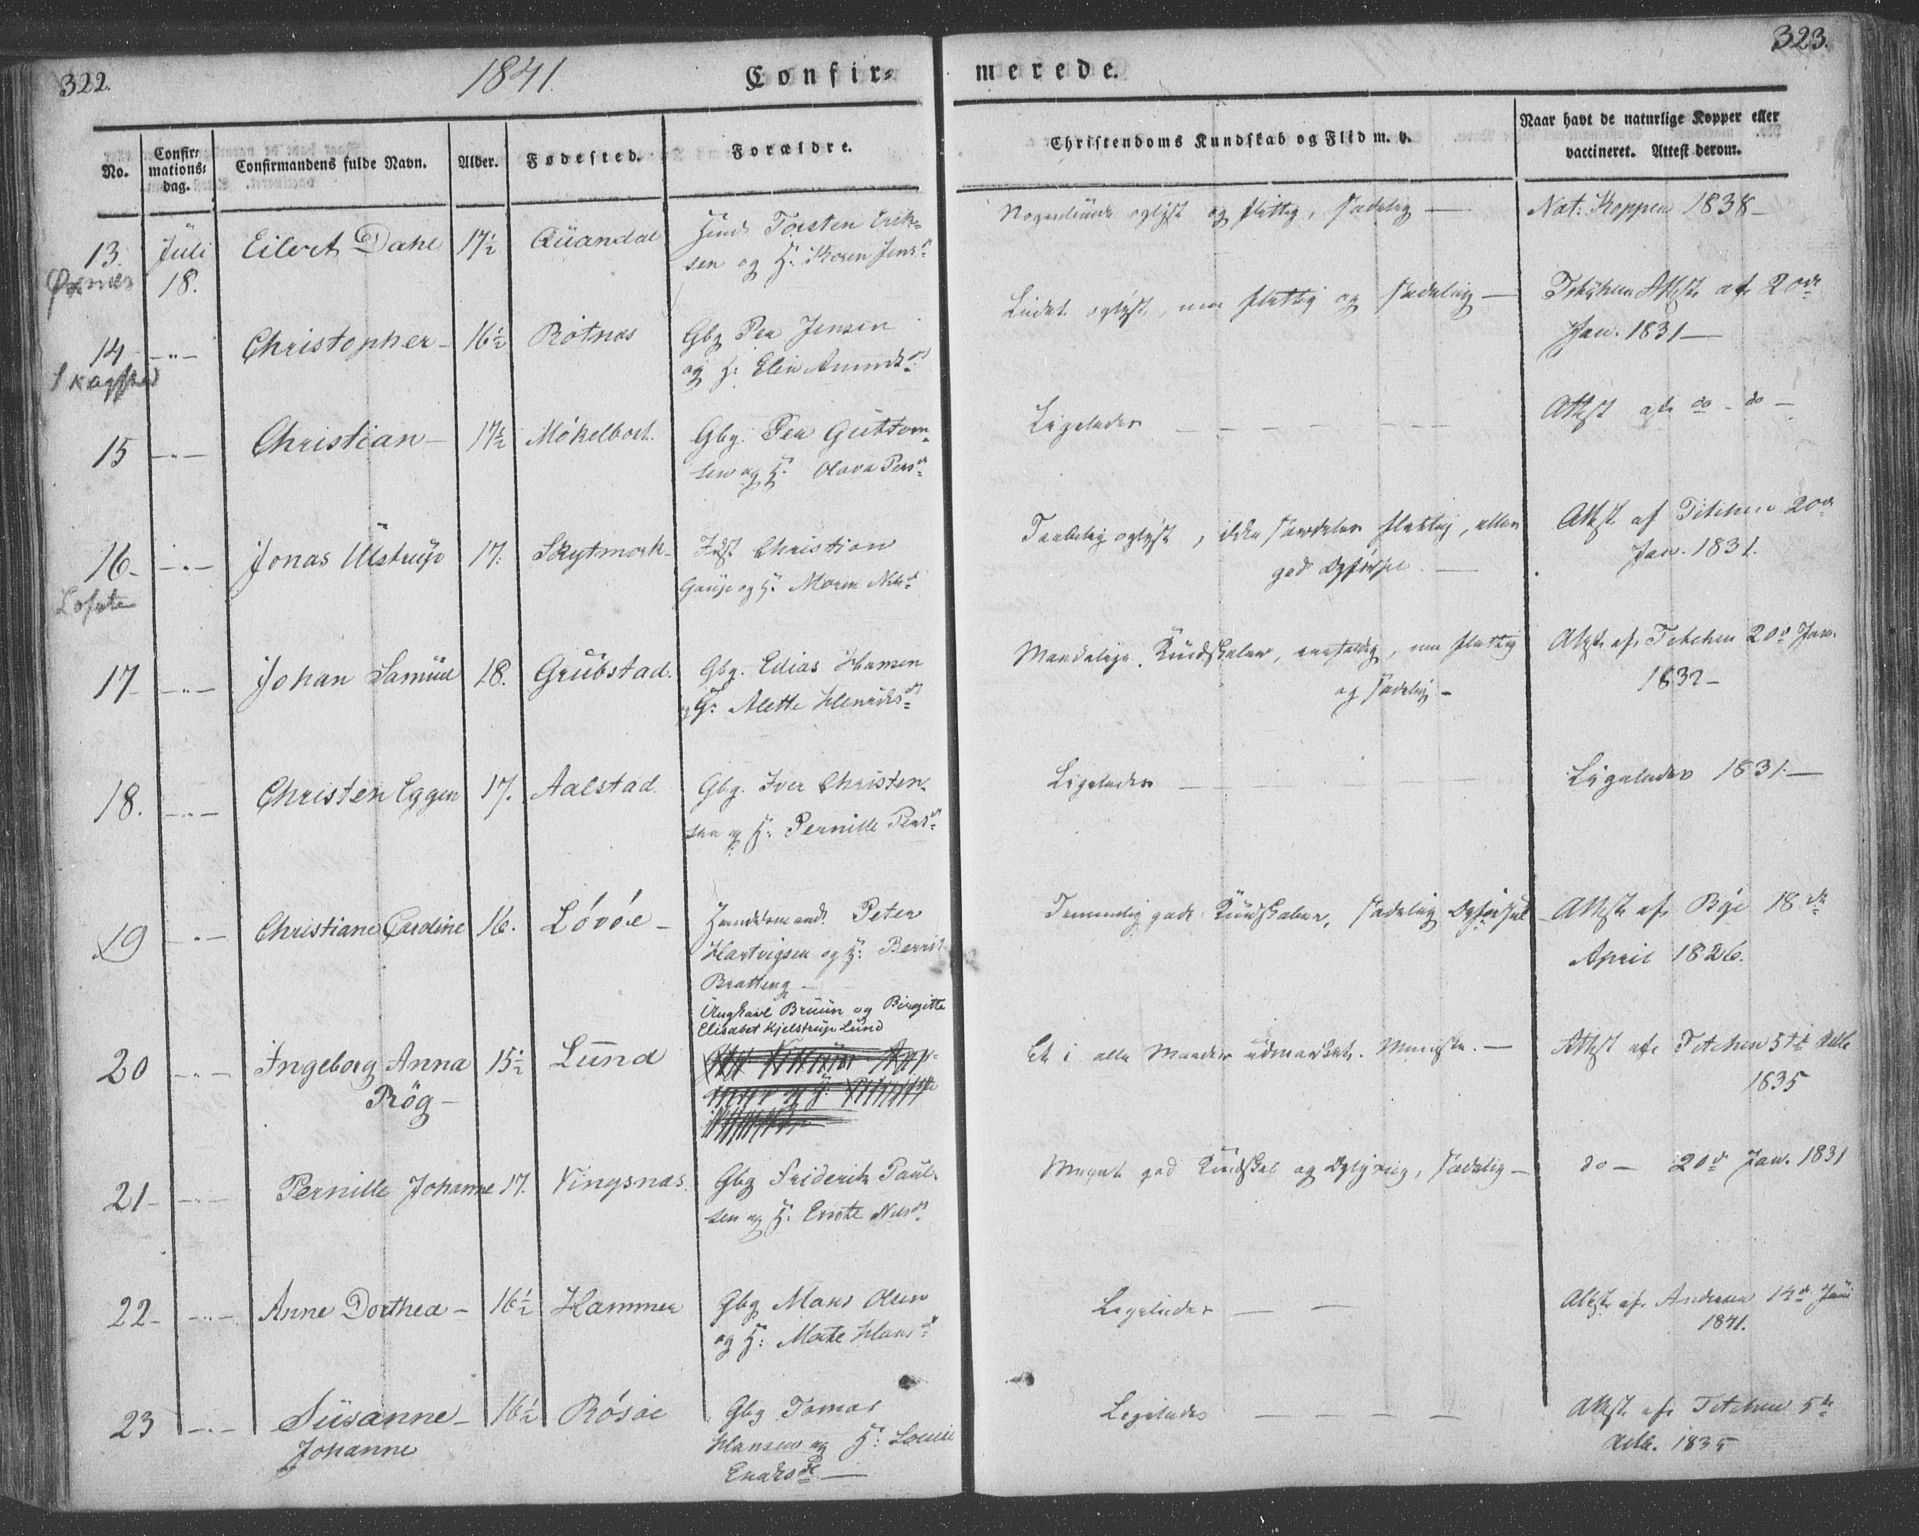 322.
1841.
Confir=
merede.
323.
No.
Confir=
mations=
dag.
Confirmandens fulde Navn.
Alder.
Fødested.
Forældre.
Christendoms Kundskab og Flid m. v.
Naar havt de naturlige Kopper eller
vaccineret. Attest derom.
13.
Juli
18.
Eilert Dahl
17½
Qüandal
Torsten Erik-
sen og H: Karen Jens d
Nogenlunde oplyst og flittig, sædelig —
Nat: Koppen 1838 —
14
Christopher —
16½
Rotnæs
Gbg Per Jensen
og H: Elen Amunds d
Lidet oplyst, men flittig og sædelig —
Attest af 20de
Jan. 1831 —
15
Christian —
17½
Mökelbost.
Gbg. Per Guttorm-
sen og H: Olava Pers d
Ligeledes — — — — —
Attest af do - do —
16 —
Jonas Ulstrup
17.
Skytmark —
Christian
og H: Maren Nils d
Taalelig oplyst, ikke særdeles flittig, ellers
god Opførsel. —
Attest af Titchen 20de
Jan. 1831.
Lofote
17
Johan Samuel
18.
Grübstad.
Gbg. Elias Hansen
og H: Alette Henriks d
Maadelige Kundskaber, eenfoldig, men flittig
og sædelig —
Attest af Titchen 20de Jan.
1832 —
18.
Christen Eggen
17.
Aalstad.
Gbg. Iver Christen-
sen og H: Pernille Peders d
Ligeledes — — —
Ligeledes 1831. —
19
Christiane Cardine
16.
Lövöe —
Handelsmand Peter
Hartvigsen og H: Berrit
Bratteng —
Temmelig gode Kundskaber, sædelig Opførsel
Attest af Bye 18de
April 1826.
Bruun og Birgitte
Elisabet Kjelstrup Lund
20
Ingeborg Anna
Rög —
15½
Lund
Et i alle Maader udmærket Menneske. —
Attest af Titchen 5te Octbr
1835
21 —
Pernille Johanne
17.
Vingsnæs.
Gbg Friderik Paul-
sen og H: Nils d
Meget god Kundskab og Oplysning, sædelig —
do — 20de Jan. 1831
22 —
Anne Dorthea —
16½
Hammer
Gbg Mons Olsen
og H: Marte Hans d
Ligeledes — —
Attest af Andersen 14de Juni
1841.
23
Susanne —
Johanne
16½
Rösöe
Gbg Tomas
Hansen og H: Lovise
Enoks d —
Ligeledes — — — —
Attest af Titchen 5te
Octb. 1835